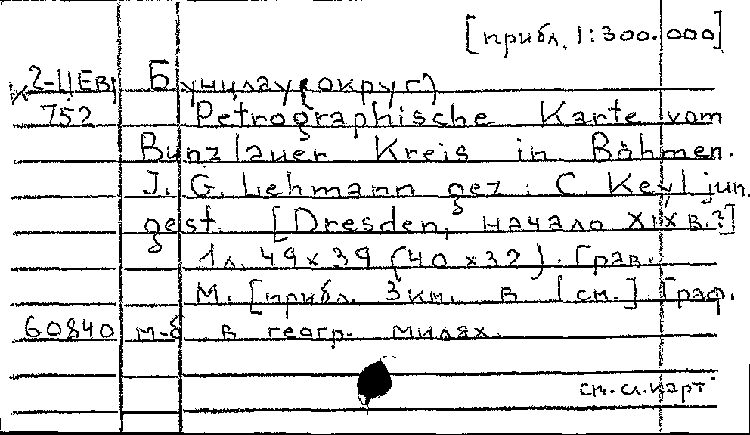 [прибл. 1:300.000]
К 2-11Ев Бунцлау (округ)
752 Petrographische Karte vom
Bunzlauer Kreis in Böhmen.
J. G. Lehmann gez: C. Keyl jun.
gest. [Dresden, начало XIX в.?]
1л. 49 x 39 (40 x 32). Грав.
М. [прибл. 3 км. в 1 см.] Граф.
60840 м-б в геогр. милях.
см. сл. карт